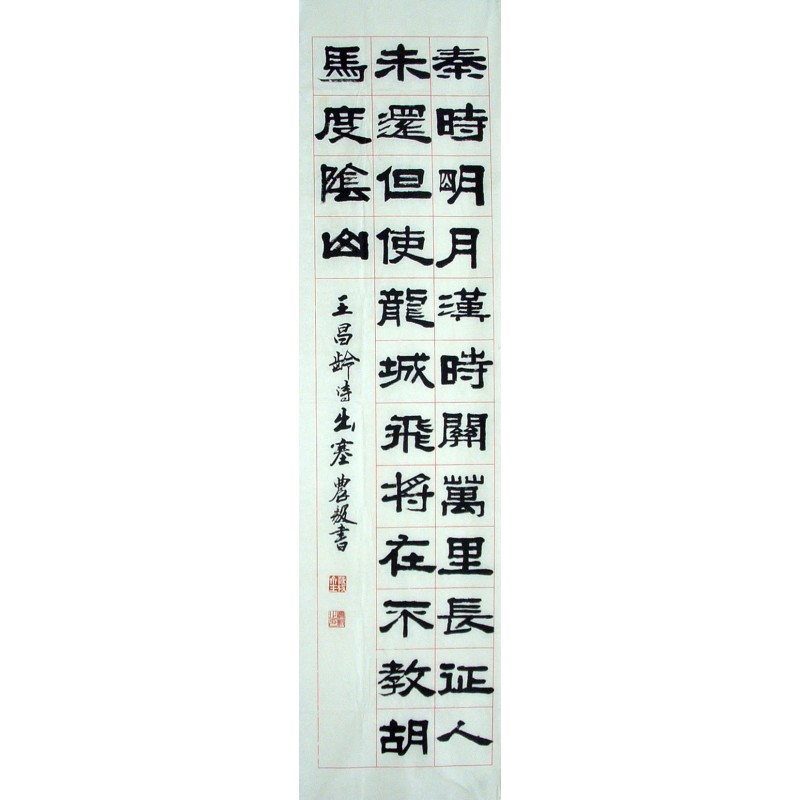 秦時明月漢時關萬里長征人
未還但使龍城飛将在不教胡
馬度陰山
王昌齡詩出塞農毅書